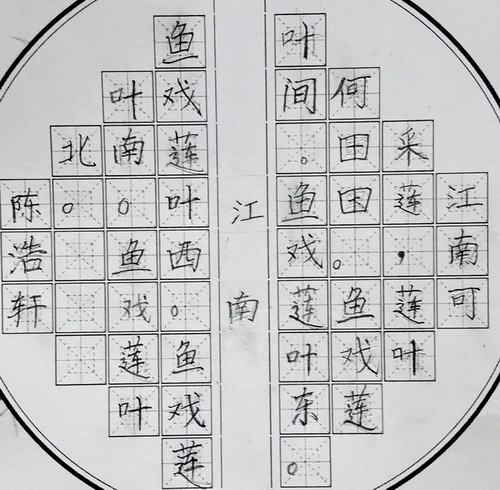 江南可
采莲，莲叶
何国国。鱼戏莲
叶间。鱼戏莲叶东。
江南
鱼戏莲叶西。鱼戏莲
叶南。鱼戏莲叶
北。
陈浩轩